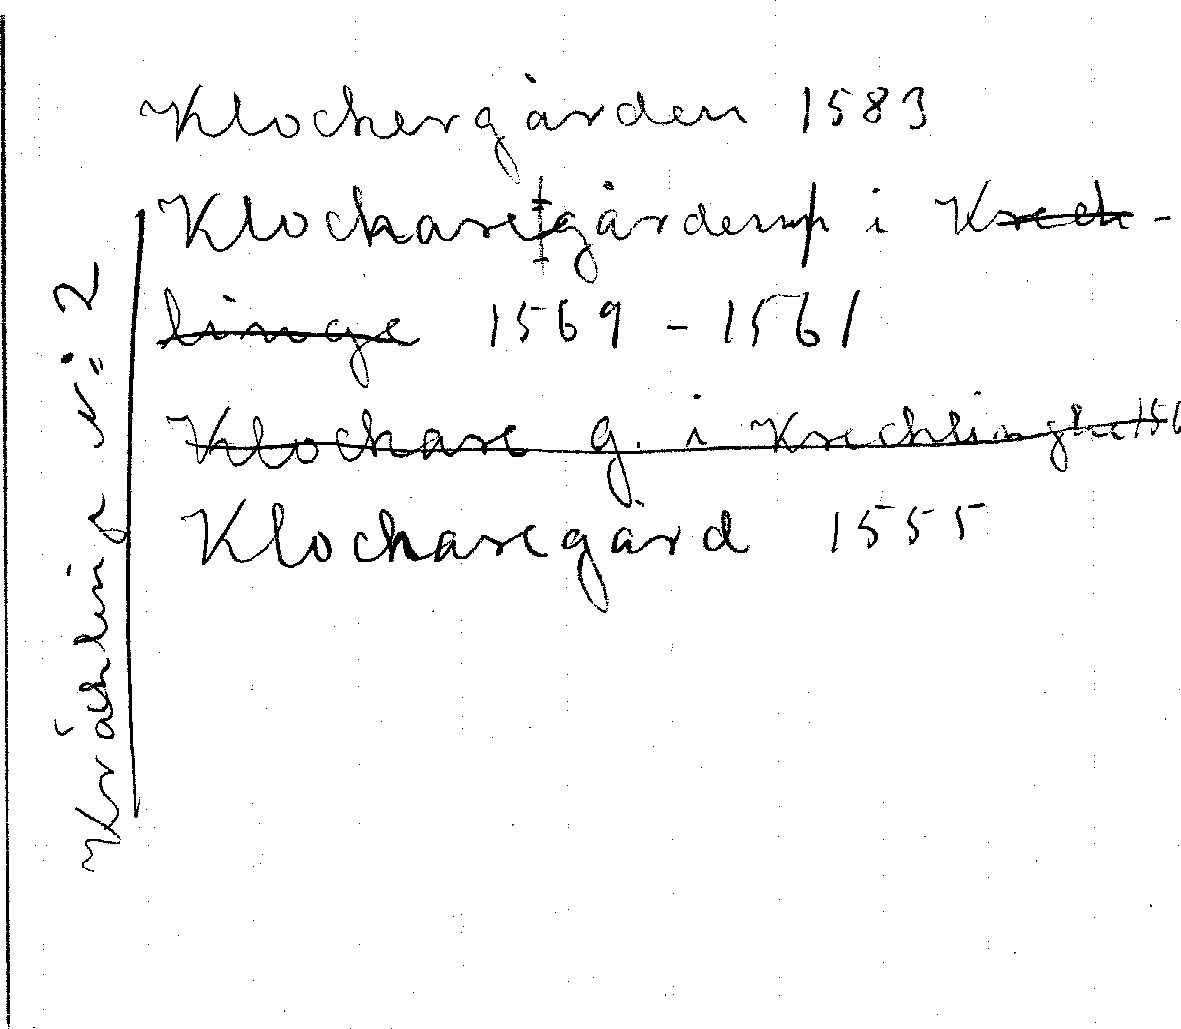 Klockergården 1583
Klockaregården i Kreck-
linge 1569 - 1561
Klockare g. i Krecklinghe 156
Klockaregård 1555
Kräcklinge N: 2